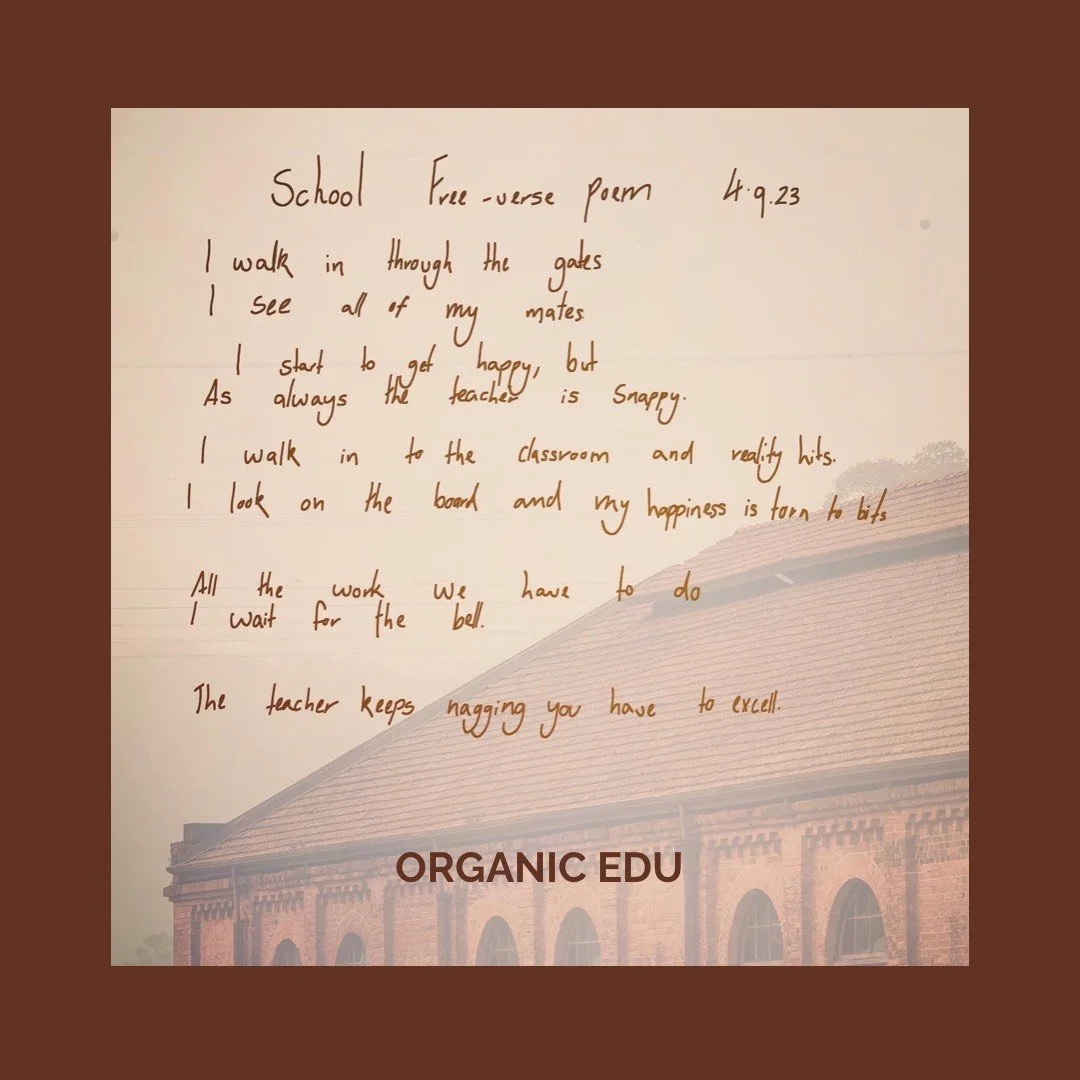 School Free-verse poem 4.9.23
I walk in through the gates
I see all of my mates
I start to get happy, but
As always the teacher is Snappy.
I walk in to the classroom and reality hits.
I look on the board and my happiness is torn to bits
All the work we have to do
I wait for the bell.
The teacher keeps nagging you have to excell.
ORGANIC EDU